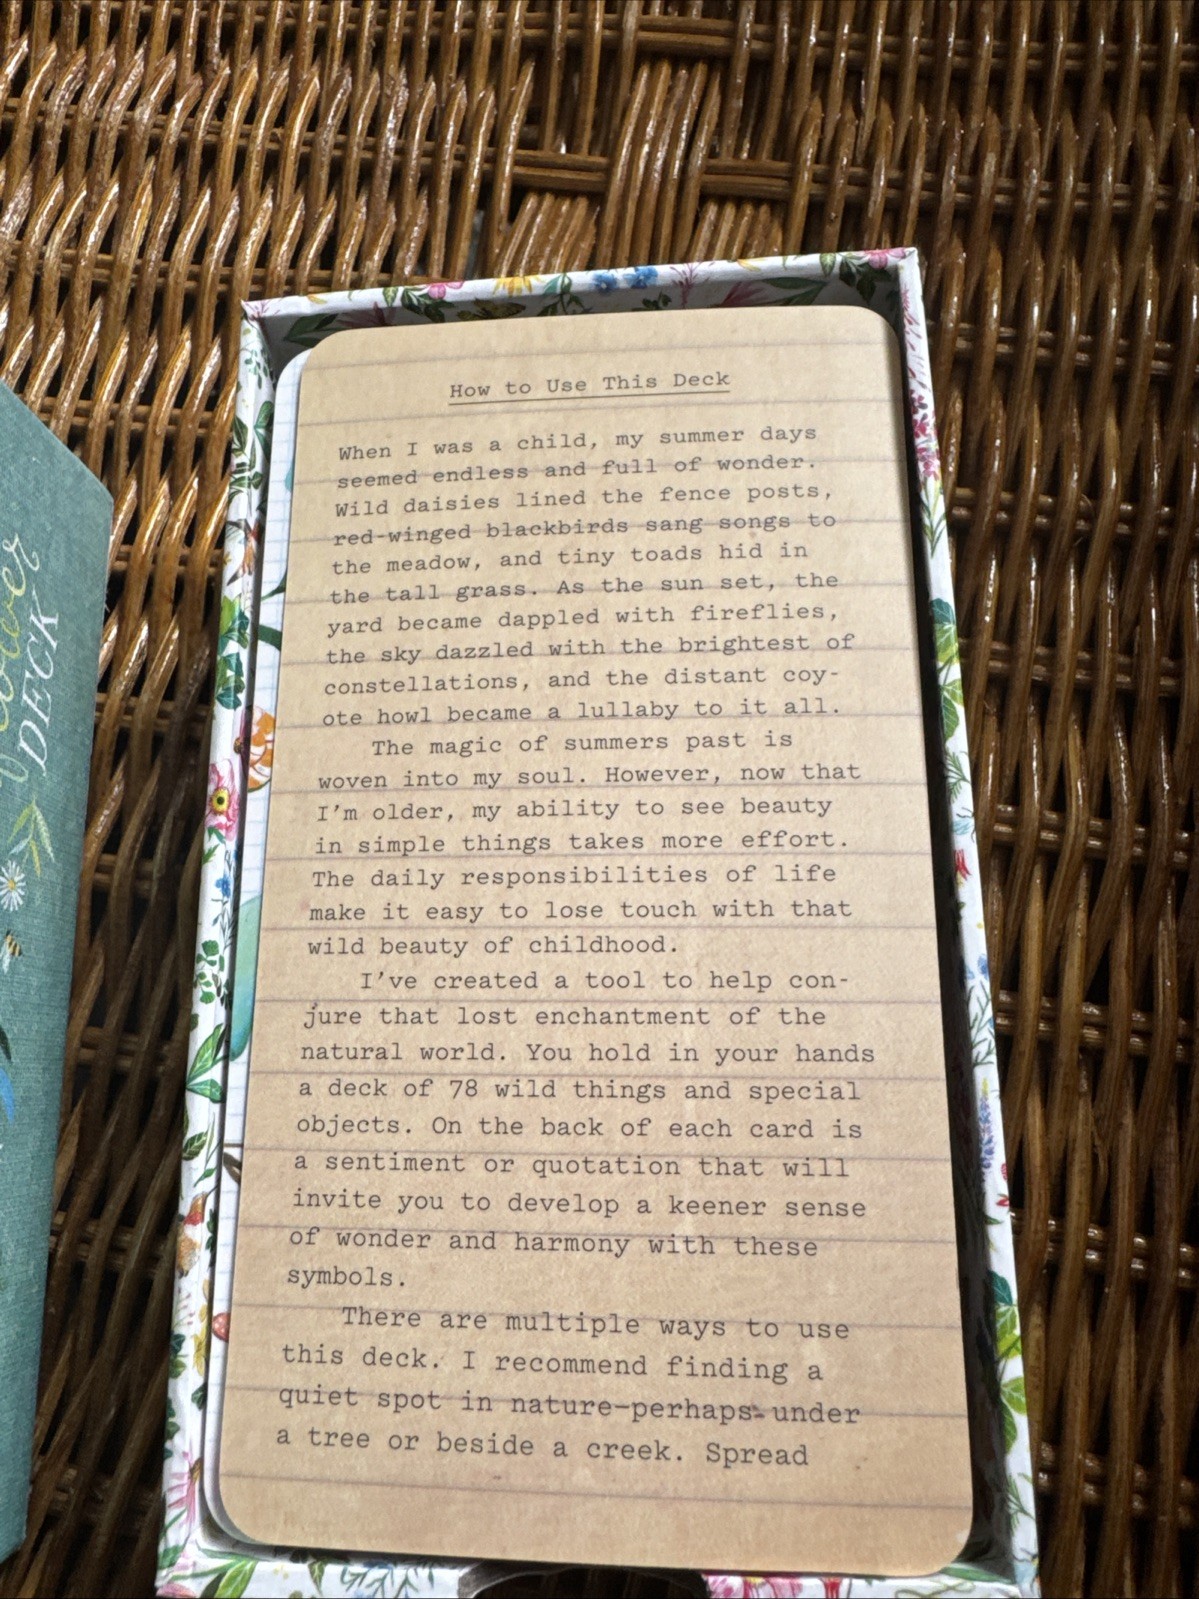 DECK
How to Use This Deck
When I was a child, my summer days
seemed endless and full of wonder.
Wild daisies lined the fence posts,
red-winged blackbirds sang songs to
the meadow, and tiny toads hid in
the tall grass. As the sun set, the
yard became dappled with fireflies,
the sky dazzled with the brightest of
constellations, and the distant coy-
ote howl became a lullaby to it all.
The magic of summers past is
woven into my soul. However, now that
I'm older, my ability to see beauty
in simple things takes more effort.
The daily responsibilities of life
make it easy to lose touch with that
wild beauty of childhood.
I've created a tool to help con-
jure that lost enchantment of the
natural world. You hold in your hands
a deck of 78 wild things and special
objects. On the back of each card is
a sentiment or quotation that will
invite you to develop a keener sense
of wonder and harmony with these
symbols.
There are multiple ways to use
this deck. I recommend finding a
quiet spot in nature—perhaps under
a tree or beside a creek. Spread